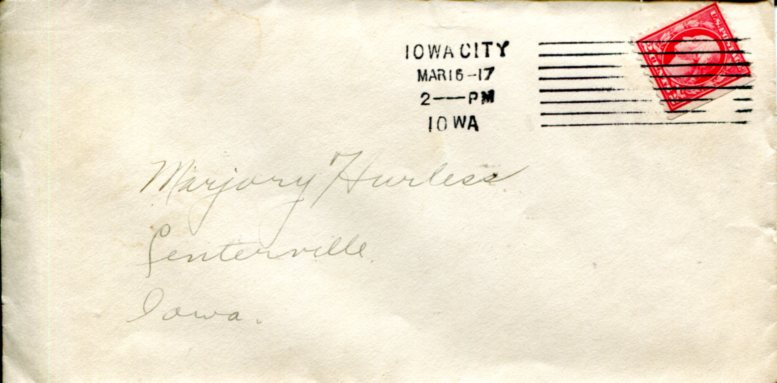 IOWA CITY
MAR 16-17
2 — PM
IOWA
Marjory Hurless
Centerville.
Iowa.